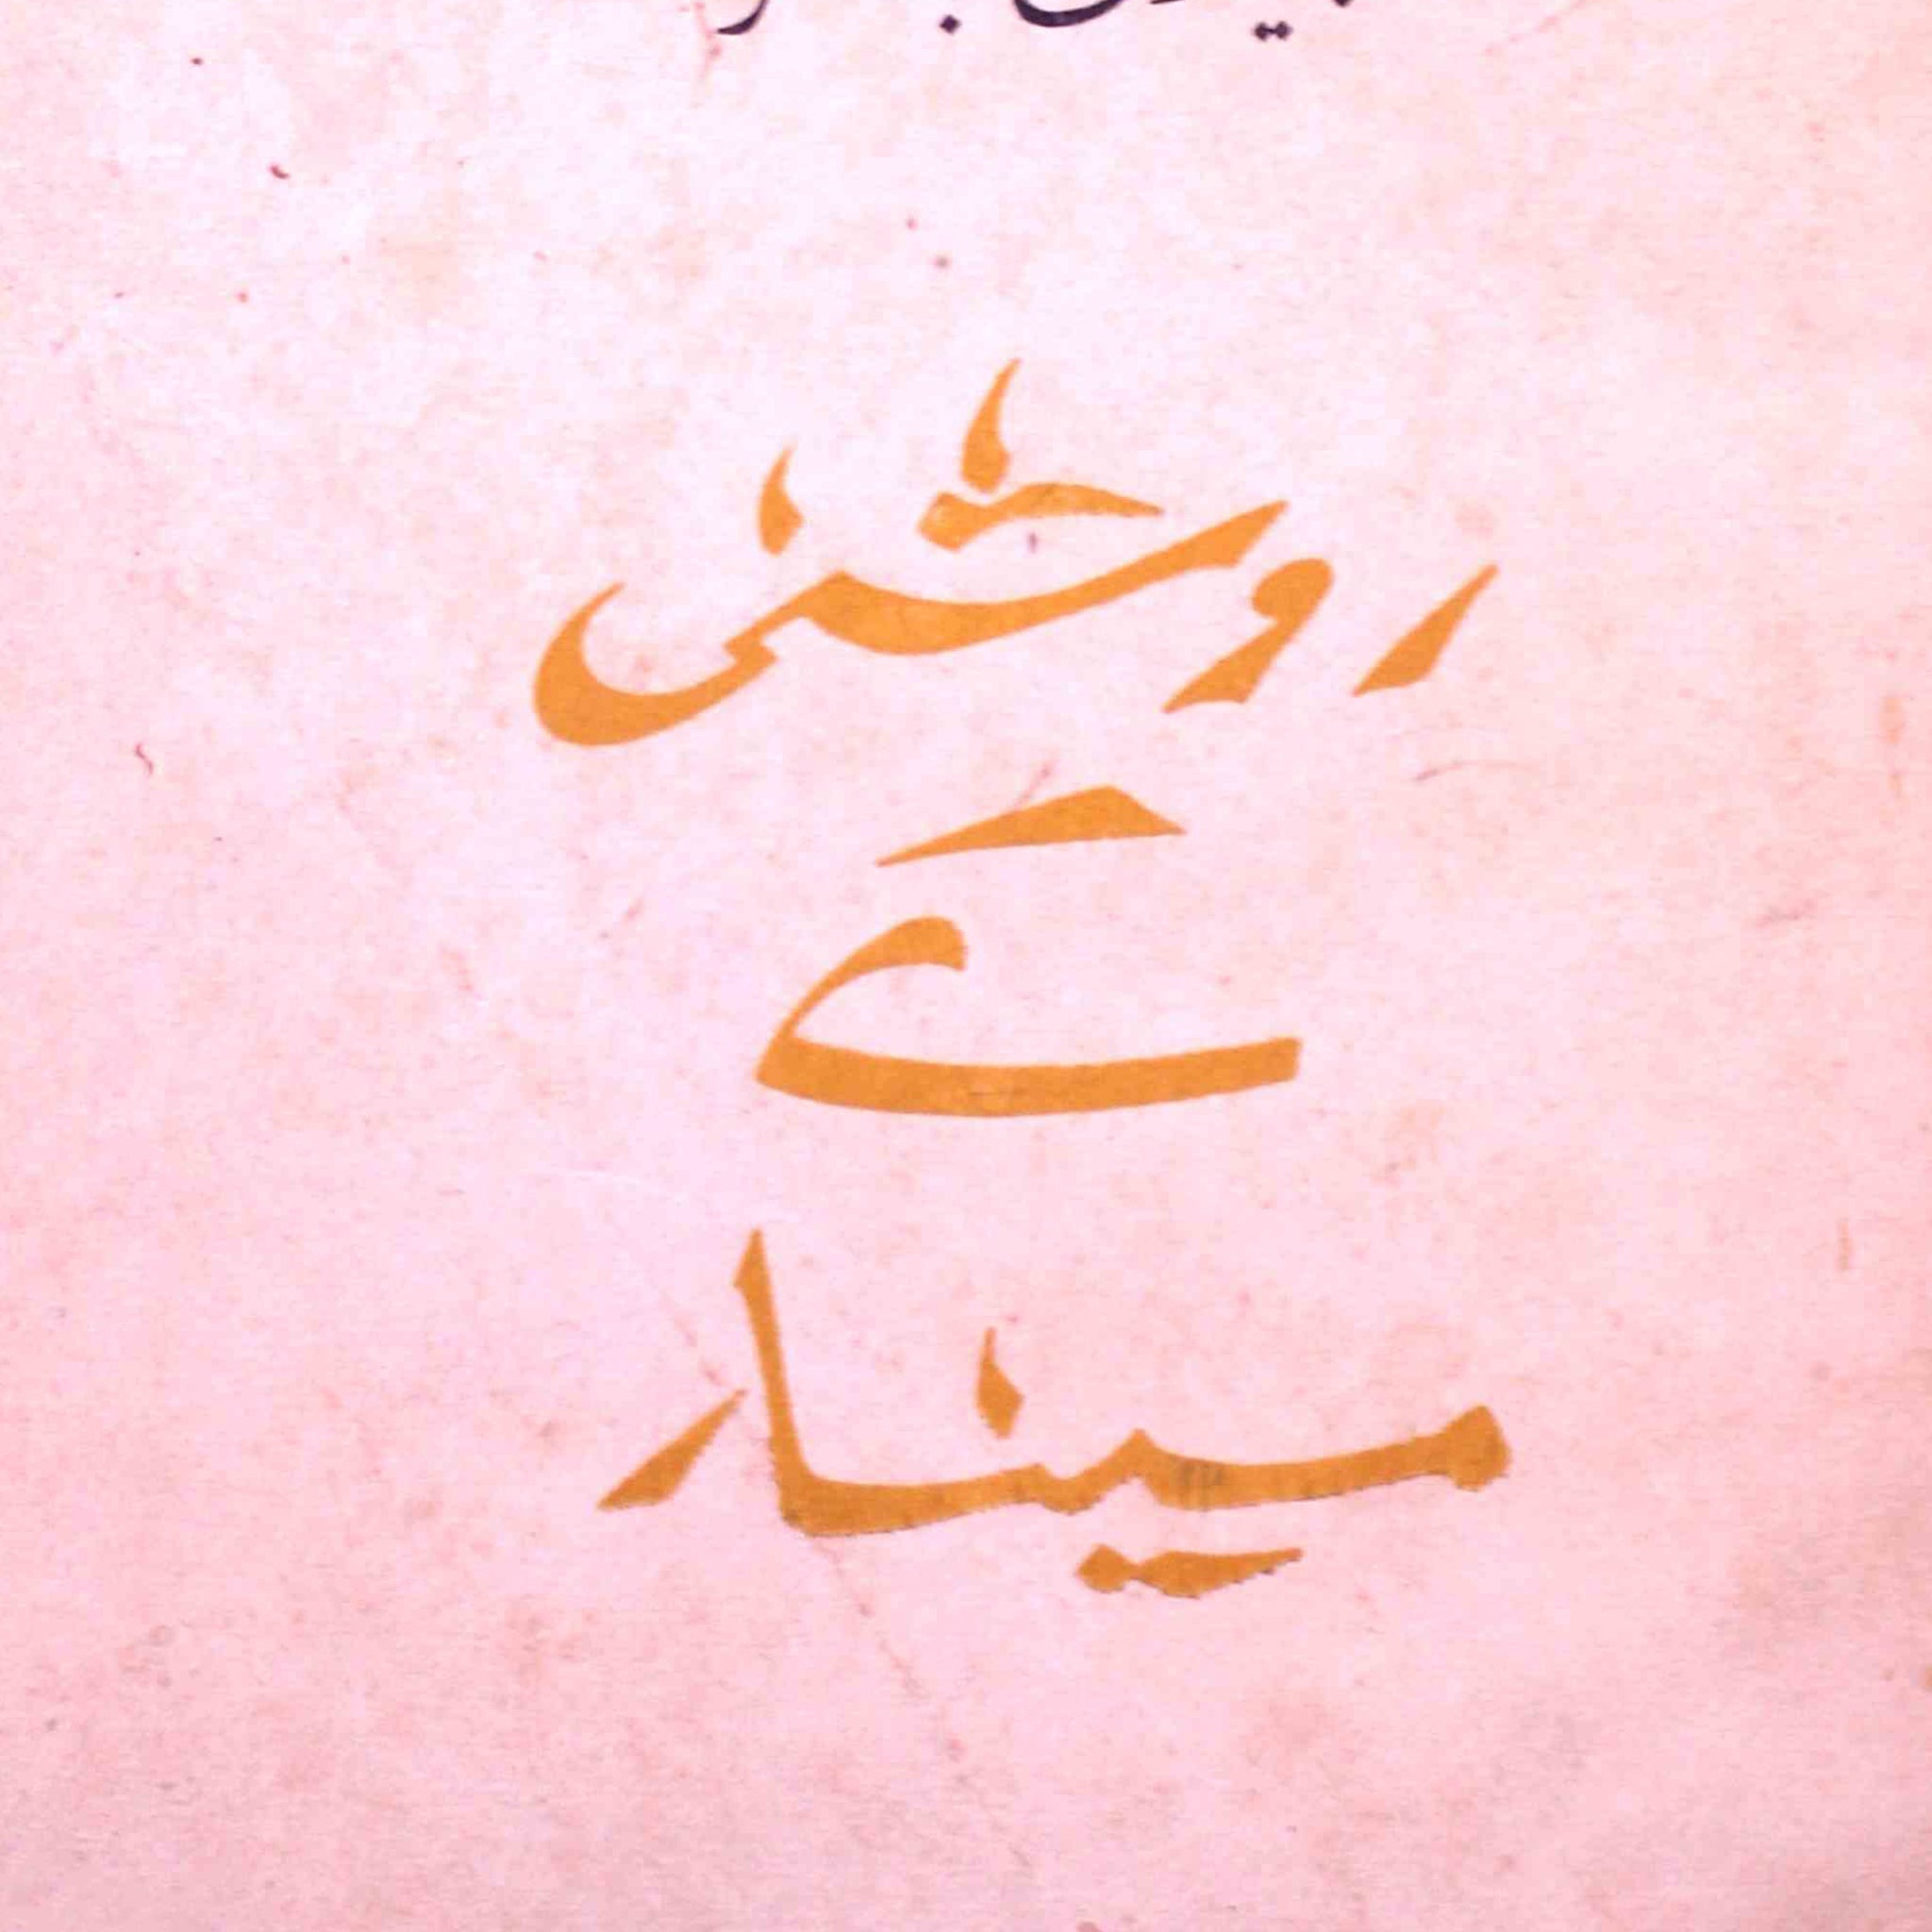 روشنی
کے
مینار